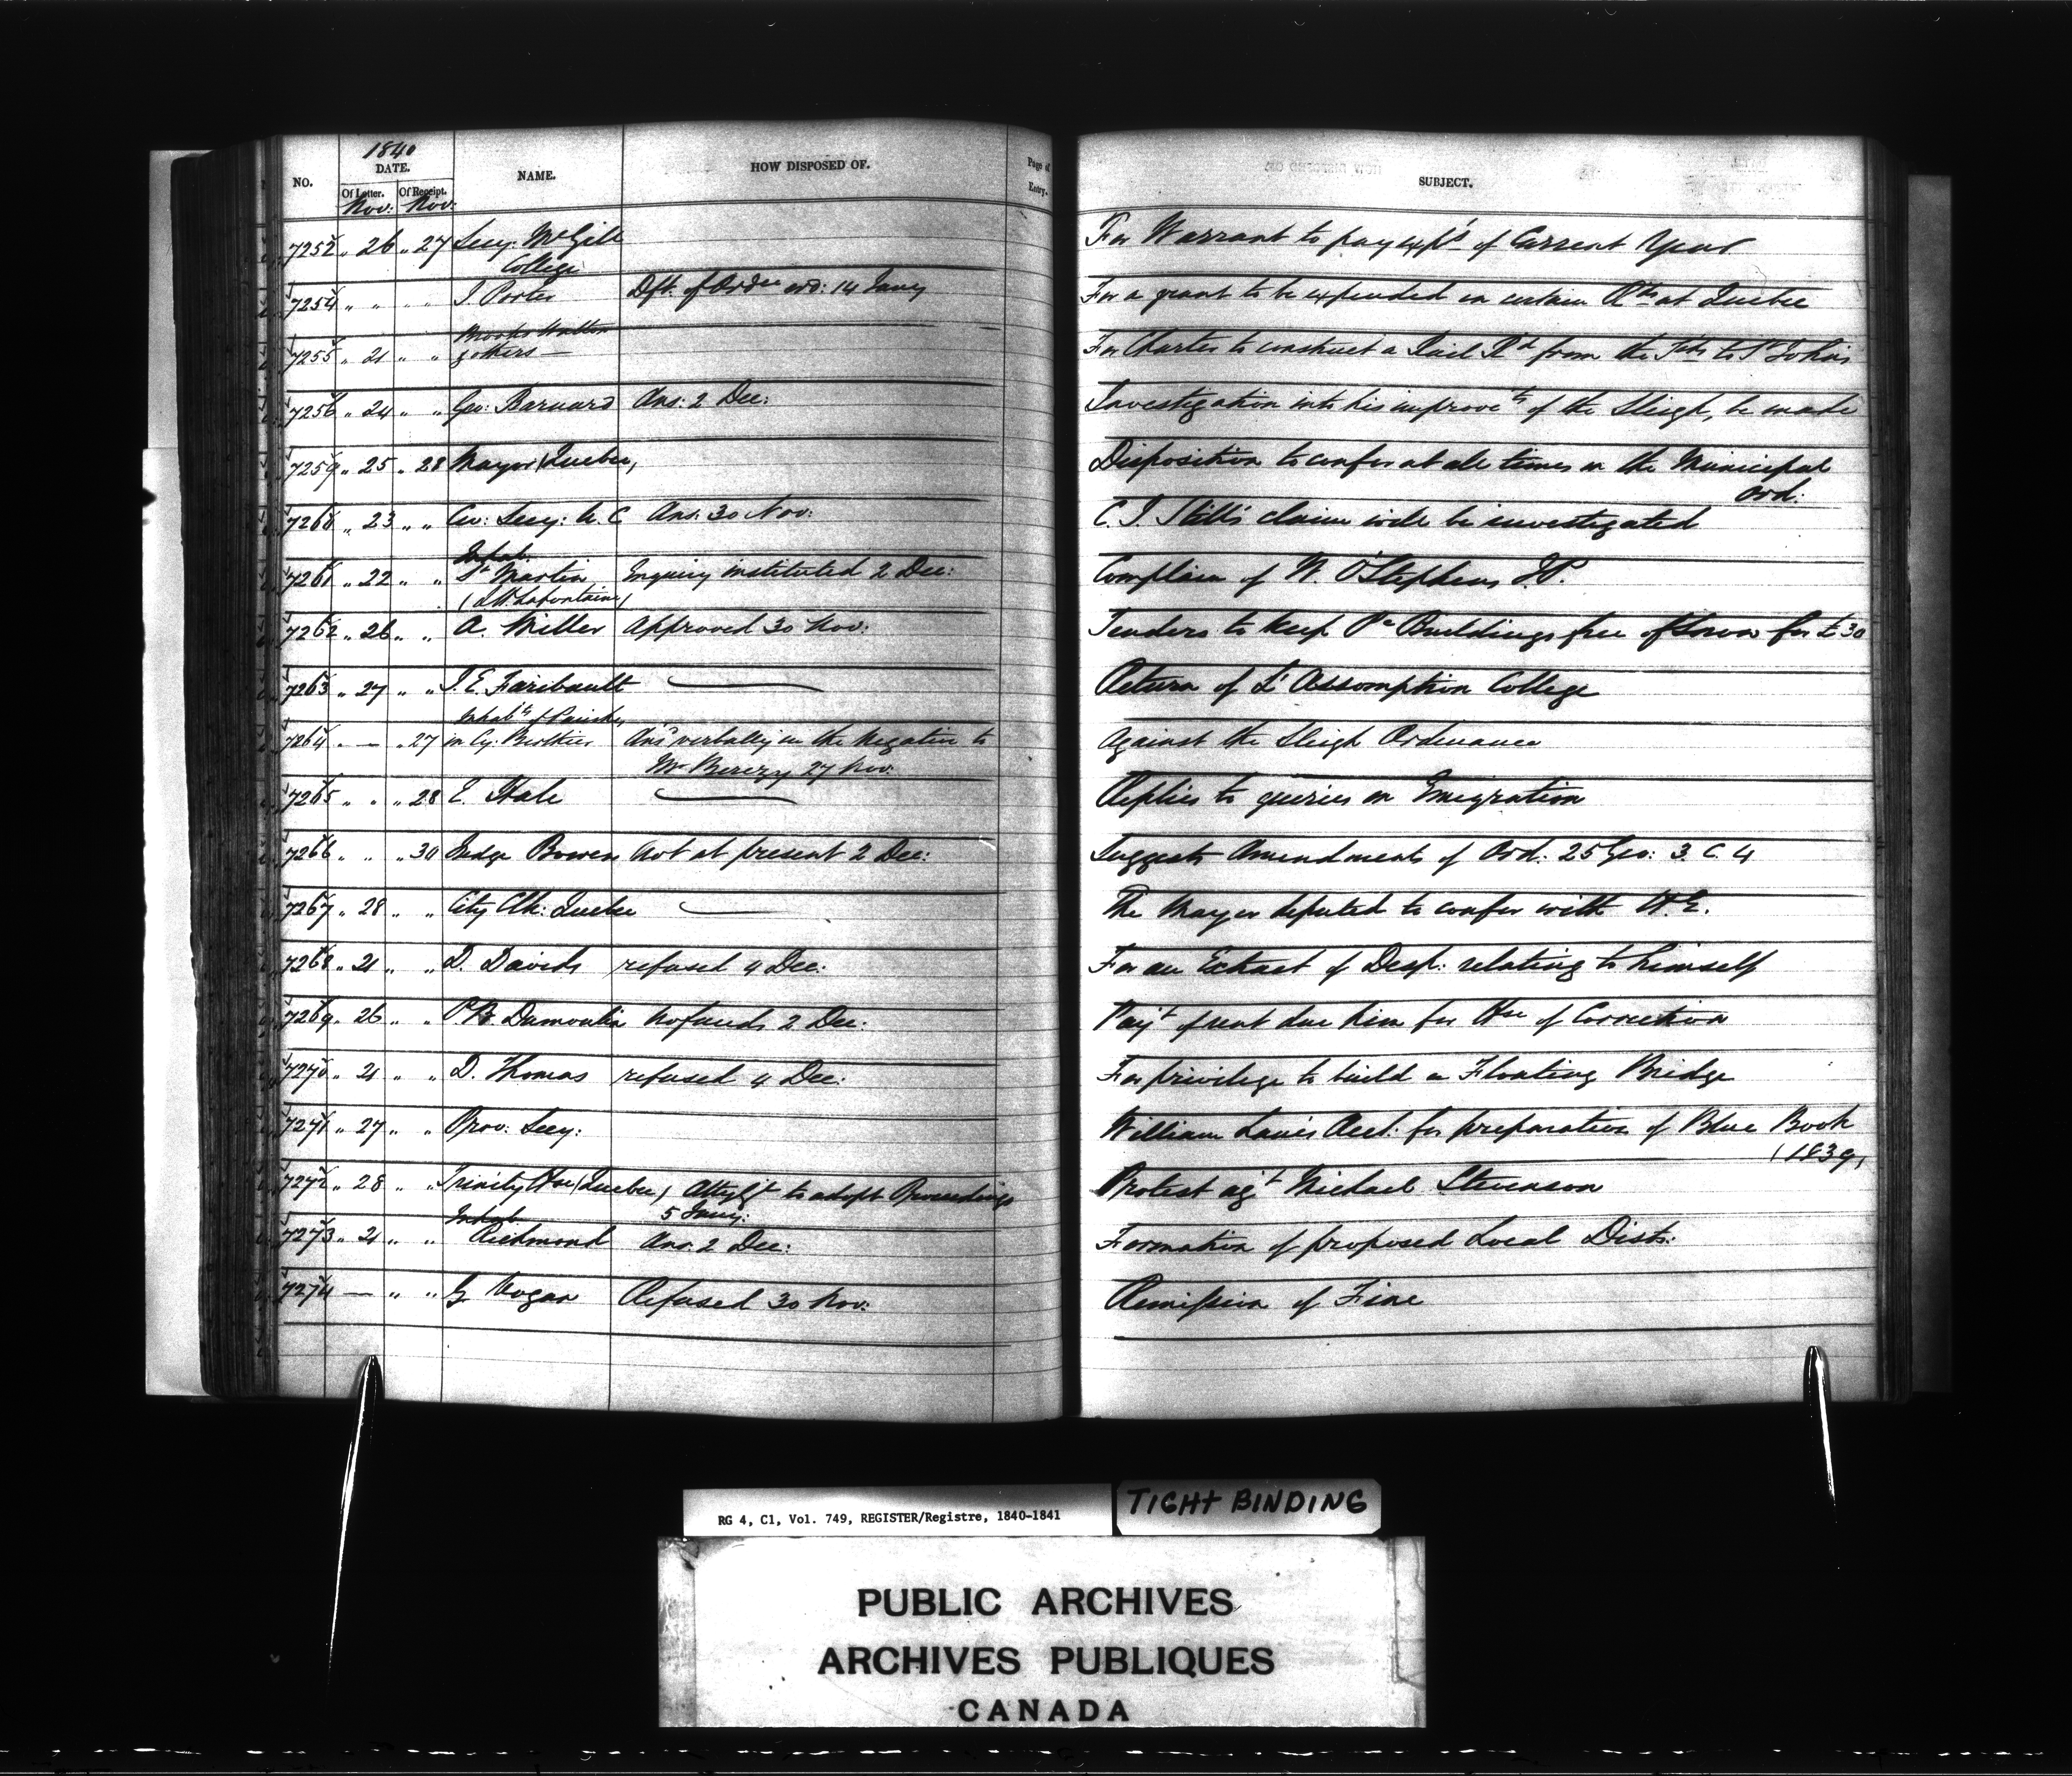 1840
NO. DATE. NAME. HOW DISPOSED OF. Page of Entry. SUBJECT.
Of Letter. Of Receipt.
Nov: Nov:
7252 " 26 " 27 Secy: McGill College For Warrant to pay exps of Current Year
7254 " " " " J Porter Dft. of Ordce ord: 14 Jany For a grant to be expended on certain Rds at Quebec
7255 " 21 " " Brooks Hutton & others — For Charter to construct a Rail Rd from the to St Johns
7256 " 24 " " Geo: Barnard Ans: 2 Dec: Investigation into his improvets of the Sleigh, be made
7259 " 25 " 28 Mayor (Quebec) Disposition to confer at all times on the Municipal Ord:
7260 " 23 " " Civ: Secy: U. C Ans: 30 Nov: C. J. Still's claim will be investigated
7261 " 22 " " Inhab. St Martin (LH. Lafontaine) Inquiry instituted 2 Dec: Complain of W. O'Stephens J.P.
7262 " 26 " " A. Miller Approved 30 Nov: Tenders to keep Pc Buildings free of snow for £30
7263 " 27 " " J. E. Faribault — Return of L'Assomption College
7264 " — " 27 Inhabts of Parishes in Cy: Berthier Ansd verbally in the negative to Mr Berczy 27 Nov: Against the Sleigh Ordinance
7265 " " " 28 E. Hale — Replies to queries on Emigration
7266 " " " 30 Judge Bowen Not at present 2 Dec: Suggests Amendments of Ord: 25 Geo: 3 C. 4
7267 " 28 " " City Clk: Quebec — The Mayor deputed to confer with H.E.
7268 " 21 " " D. Davids refused 4 Dec: For an Extract of Desp: relating to himself
7269 " 26 " " P.B. Dumoulin No funds 2 Dec: Payt of rent due him for Hse of Correction
7270 " 21 " " D. Thomas refused 4 Dec: For privilege to build a Floating Bridge
7271 " 27 " " Prov: Secy: William Lane's Acct: for preparation of Blue Book (1839)
7272 " 28 " " Trinity Hse (Quebec) Atty Gl to adopt Proceedings 5 Jany: Protest agt Michael Stevenson
7273 " 21 " " Inhab. Richmond Ans: 2 Dec: Formation of proposed Local Dists:
7274 — " " G Vogan Refused 30 Nov: Remission of Fine
RG 4, C1, Vol. 749, REGISTER/Registre, 1840-1841
TIGHT BINDING
PUBLIC ARCHIVES
ARCHIVES PUBLIQUES
CANADA